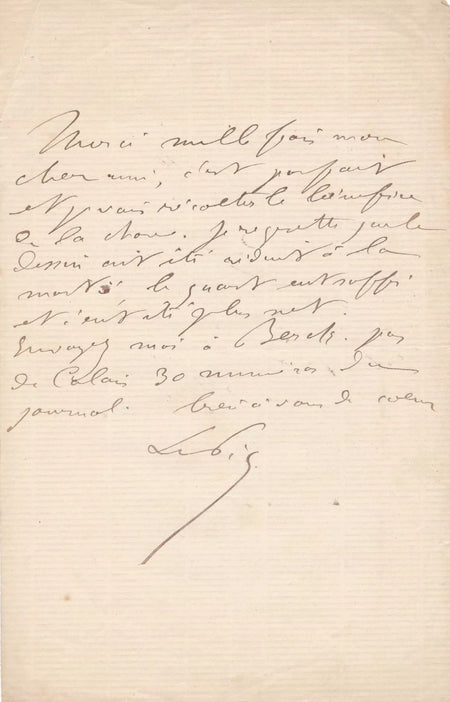 Merci mille fois mon
cher ami, c'est parfait
et je vais récolter le bénéfice
de la chose. je regrette que le
dessin ait été réduit à la
moitié le quart eut suffi
et c'eût été plus net.
Envoyez moi à Berck. pas
de Calais 30 numéros du
journal. bien à vous de cœur